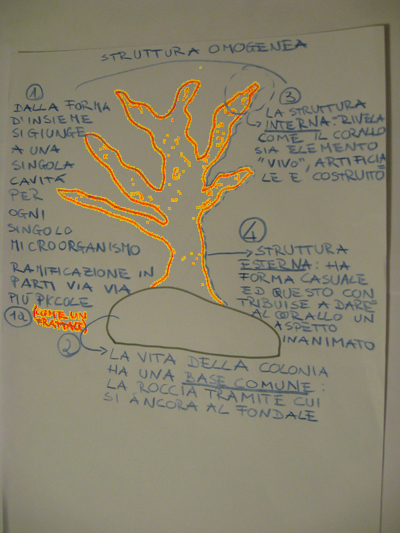 STRUTTURA OMOGENEA
1
DALLA FORMA
D'INSIEME
SI GIUNGE
A UNA
SINGOLA
CAVITÁ
PER
OGNI
SINGOLO
MICROORGANISMO
RAMIFICAZIONE IN
PARTI VIA VIA
PIÙ PICCOLE
1a (COME UN
FRATTALE)
3
LA STRUTTURA
INTERNA: RIVELA
COME IL CORALLO
SIA ELEMENTO
"VIVO", ARTIFICIA
LE E COSTRUITO
4
STRUTTURA
ESTERNA: HA
FORMA CASUALE
ED QUESTO CON
TRIBUISE A DARE
AL CORALLO UN
ASPETTO
INANIMATO
2
LA VITA DELLA COLONIA
HA UNA BASE COMUNE:
LA ROCCIA TRAMITE CUI
SI ÀNCORA AL FONDALE